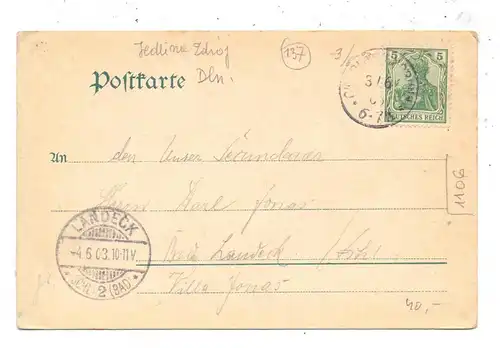 Jedlina Zdrój
137
3/
Postkarte
Dln.
5 5
3/6
6-7
DEUTSCHES REICH
An
den Unser
Herrn Karl Jonas
1106
LANDECK
4.6.03.10-11V.
2 (BAD)
Bad Landeck
Villa Jonas
40,-